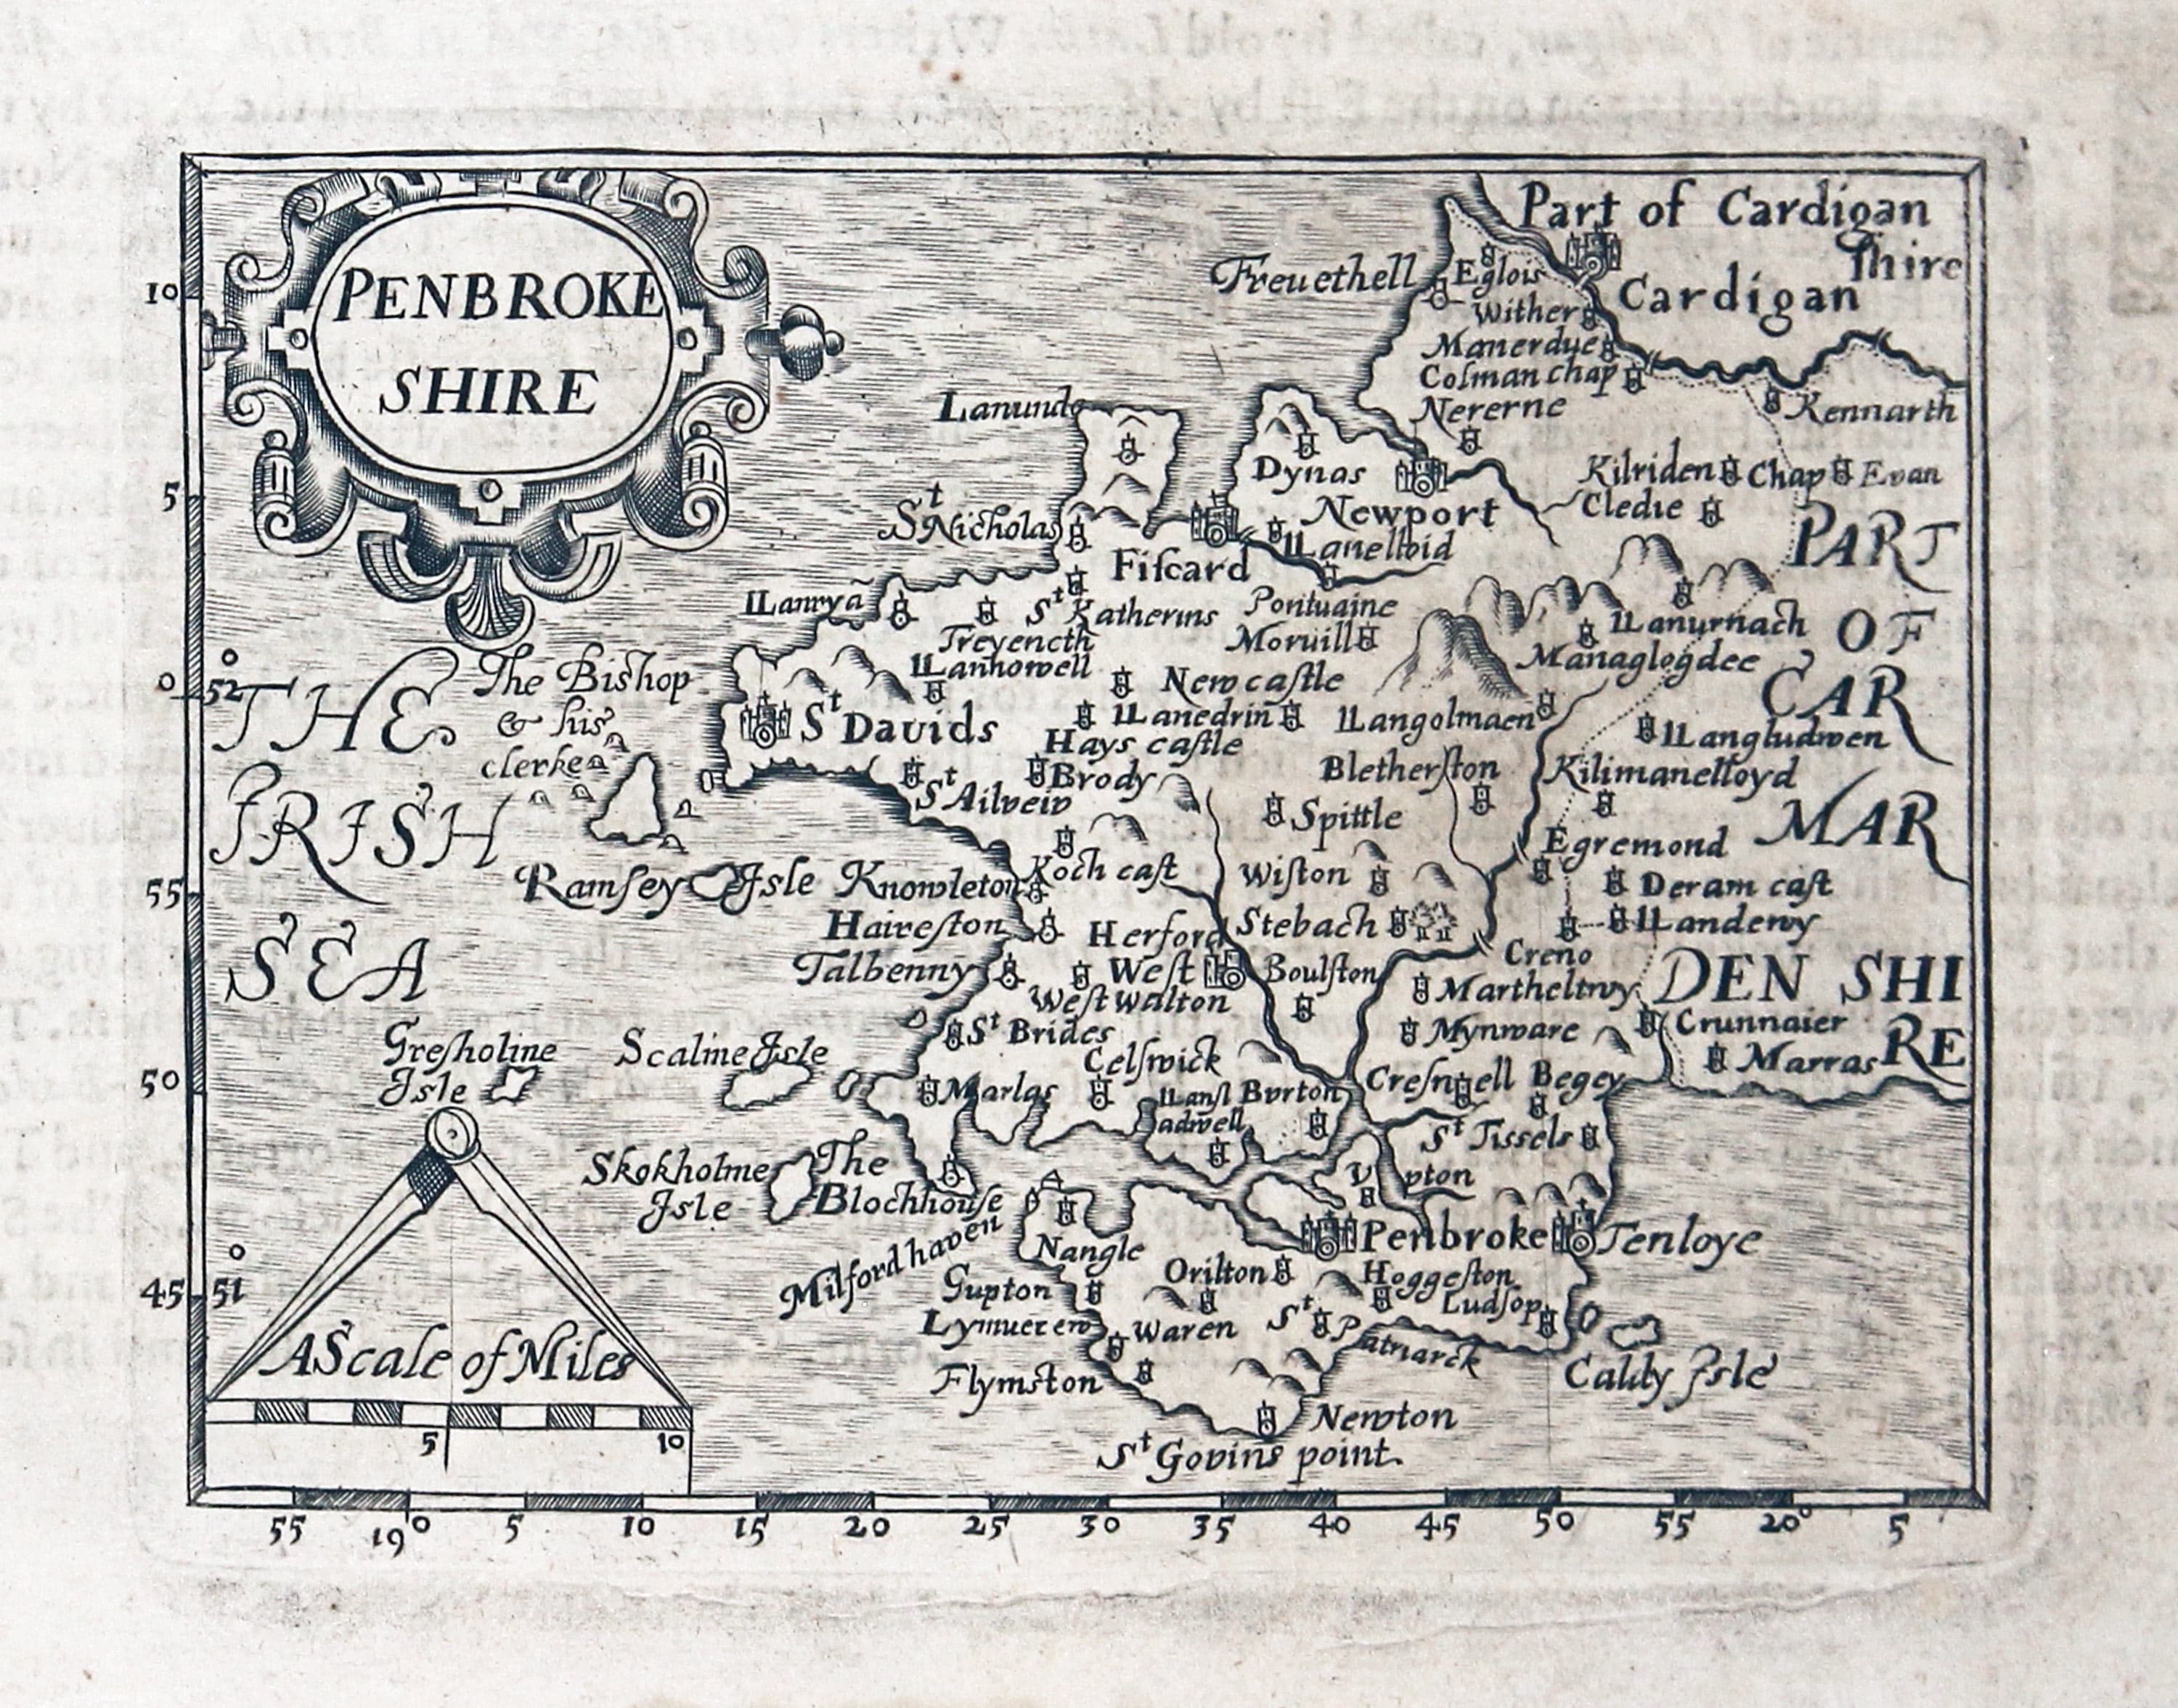 PENBROKE
SHIRE
Part of Cardigan
ſhire
Cardigan
Freuethell
Eglois
Wither
Manerdue
Colman chap
Nererne
Kennarth
Lanunda
Dynas
Newport
Kilriden
Chap Evan
Cledie
St Nicholas
Fiſcard
PART
OF
CAR
MAR
DEN SHI
RE
St Katherins
Pontuaine
Treyencth
Moruill
llanurnach
Managlogdee
llanhowell
Newcaſtle
llanedrin
llangolmaen
St Dauids
Hays caſtle
llangludwen
The Bishop
& his
clerkes
Brody
Bletherſton
Kilimanelloyd
St Ailveiv
Spittle
THE
IRISH
SEA
Ramſey Isle
Knowleton
Koch caſt
Wiſton
Egremond
Deram caſt
Haireſton
Herford
Weſt
Stebach
llandewy
Talbenny
Boulſton
Creno
Weſt walton
Martheltwy
St Brides
Mynware
Crunnaier
Marras
Greſholme
Isle
Scalme Isle
Celſwick
Marlas
llanſt
adwell
Burton
Creſnwell
Begey
St Tissels
Skokholme
Isle
The
Blockhouſe
Vpton
Milford haven
Nangle
Penbroke
Tenbye
Gupton
Orilton
Hoggeſton
Ludſop
Waren
St Patriarck
Flymston
Caldy Isle
Newton
St Govins point.
A Scale of Miles
5 10
10
5
0 52°
55
50
45 51°
55 19° 5 10 15 20 25 30 35 40 45 50 55 20° 5